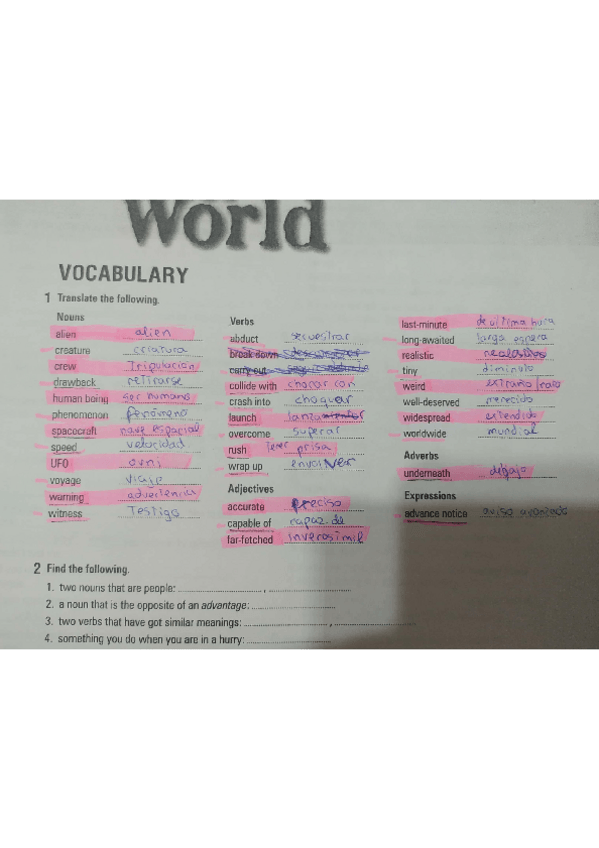 World
VOCABULARY
1 Translate the following.
Nouns
alien alien
creature criatura
crew Tripulación
drawback retirarse
human being ser humano
phenomenon fenómeno
spacecraft nave espacial
speed velocidad
UFO ovni
voyage viaje
warning advertencia
witness Testigo
Verbs
abduct secuestrar
break down
carry out
collide with chocar con
crash into choquar
launch lanza
overcome superar
rush tener prisa
wrap up envolver
Adjectives
accurate preciso
capable of capaz de
far-fetched inverosimil
last-minute de última hora
long-awaited larga espera
realistic realistas
tiny diminuto
weird extraño/raro
well-deserved merecido
widespread extendido
worldwide mundial
Adverbs
underneath debajo
Expressions
advance notice aviso avanzado
2 Find the following.
1. two nouns that are people: ,
2. a noun that is the opposite of an advantage:
3. two verbs that have got similar meanings: ,
4. something you do when you are in a hurry: